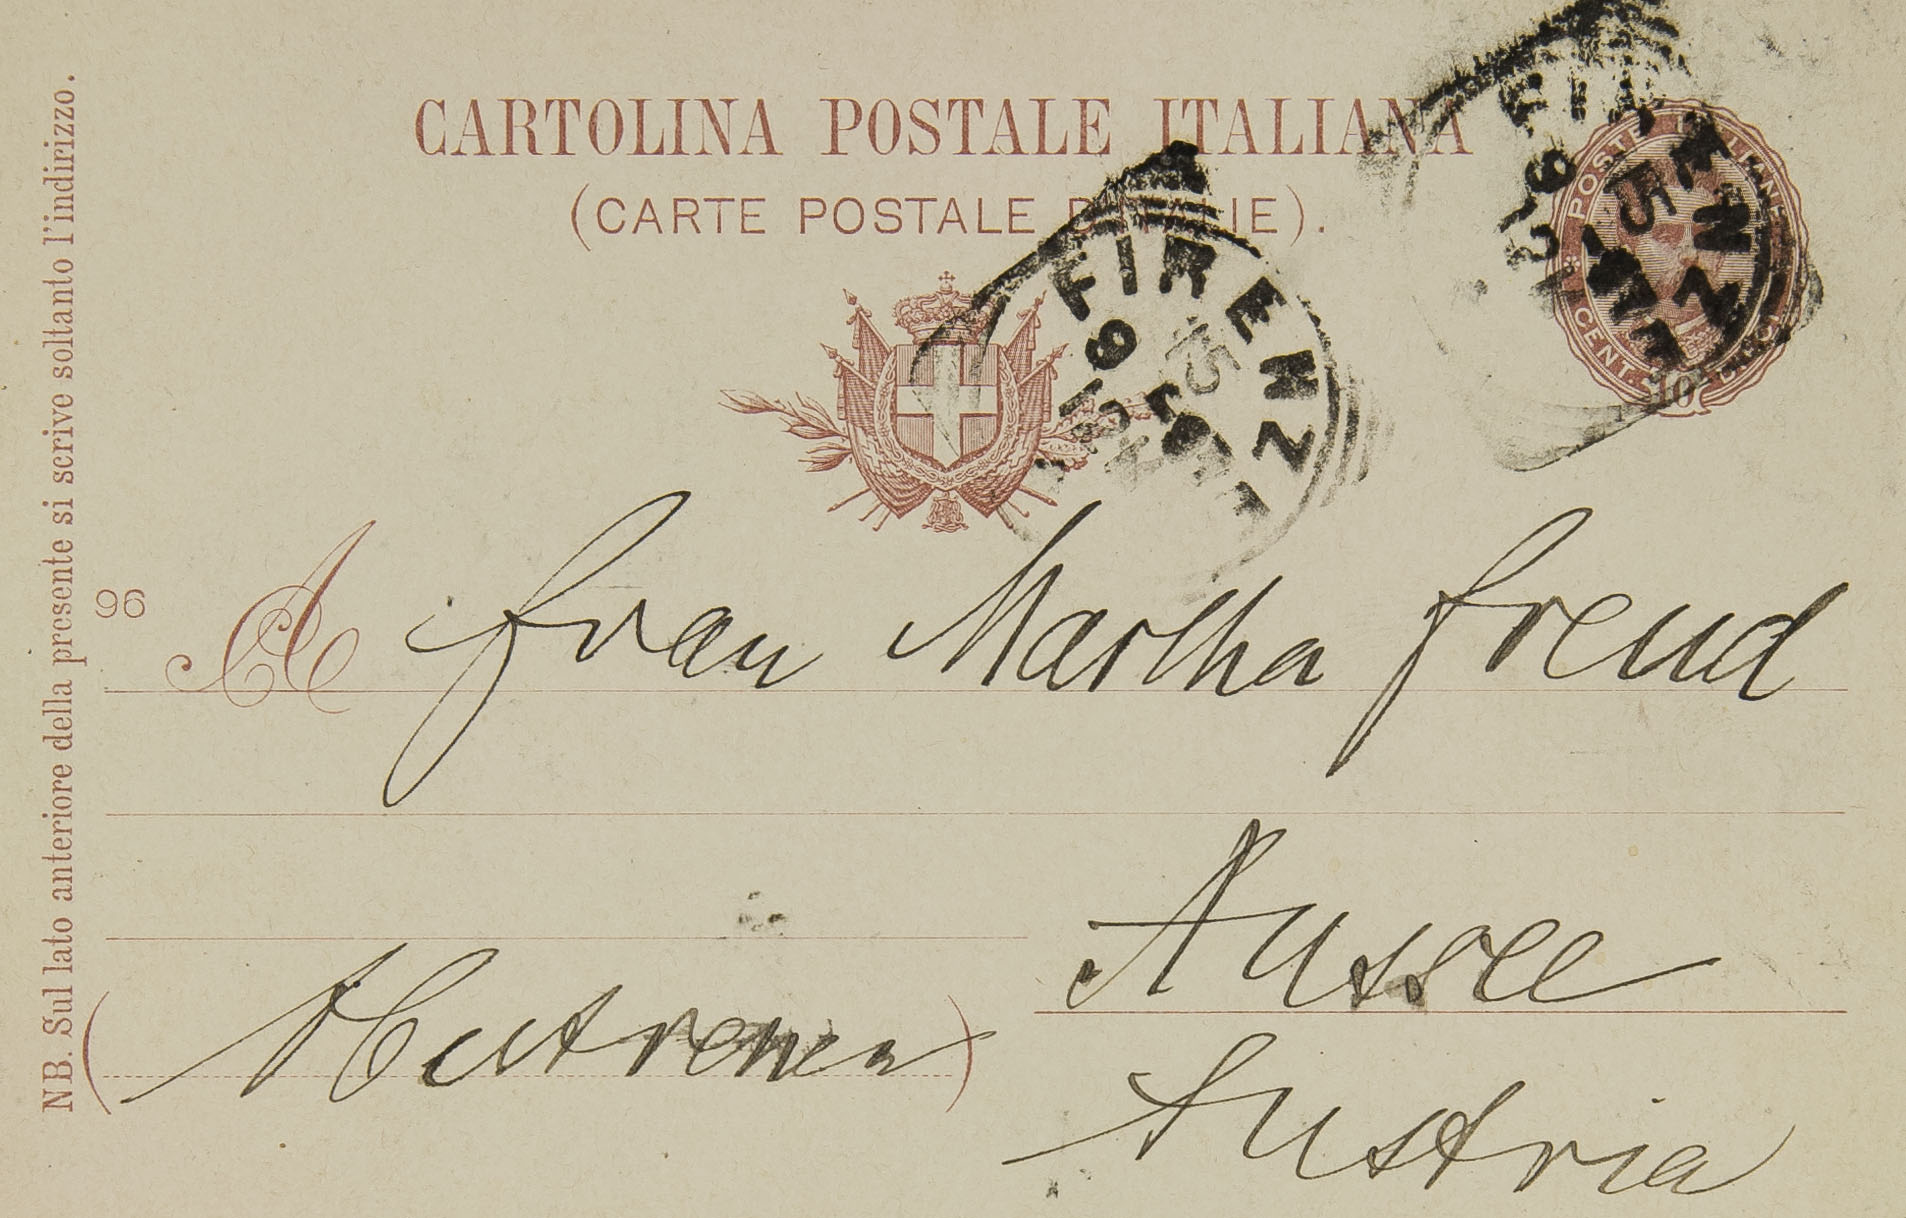 CARTOLINA POSTALE ITALIANA
(CARTE POSTALE D'ITALIE).
POSTE ITALIANE
CENT. DIECI
10
FIRENZE
9-96
5
FIRENZE
9
96
5
NB. Sul lato anteriore della presente si scrive soltanto l'indirizzo.
96
A Frau Martha Freud
Aussee
Austria